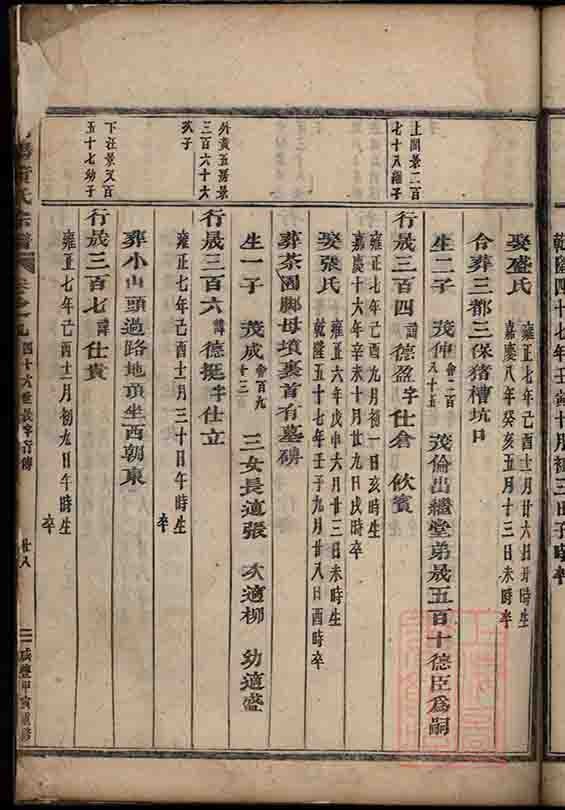 乾隆四十七年壬寅十月初三日子時
娶盛氏
雍正七年己酉六月廿日時生
嘉慶八年癸亥五月十三日未時卒
合葬三都三保猪槽坑口
生二子 茂仲 會二百八十五 茂倫出繼堂弟晟五百十德臣為嗣
上閣景二百
七十八繼子
行晟三百四 諱德盈字仕倉 飲賓
雍正七年己酉九月初一日亥時生
嘉慶十六年辛未十月廿九日戌時卒
娶張氏
雍正六年戊申六月廿三日未時生
乾隆五十七年壬子九月廿八日酉時卒
葬茶園脚母墳裏首有墓磚
生一子 茂成 會百九十三 三女長適張 次適柳 幼適盛
外黃五房景
三百六十六
次子
行晟三百六 諱德挺字仕立
雍正七年己酉十一月三十日午時生
卒
葬小山頭過路地頂坐西朝東
下汪景又百
五十七幼子
行晟三百七 諱仕貴
雍正七年己酉十二月初九日午時生
卒
氏宗譜 卷之九 四十六世晟字行傳 廿八 咸豐甲寅重修